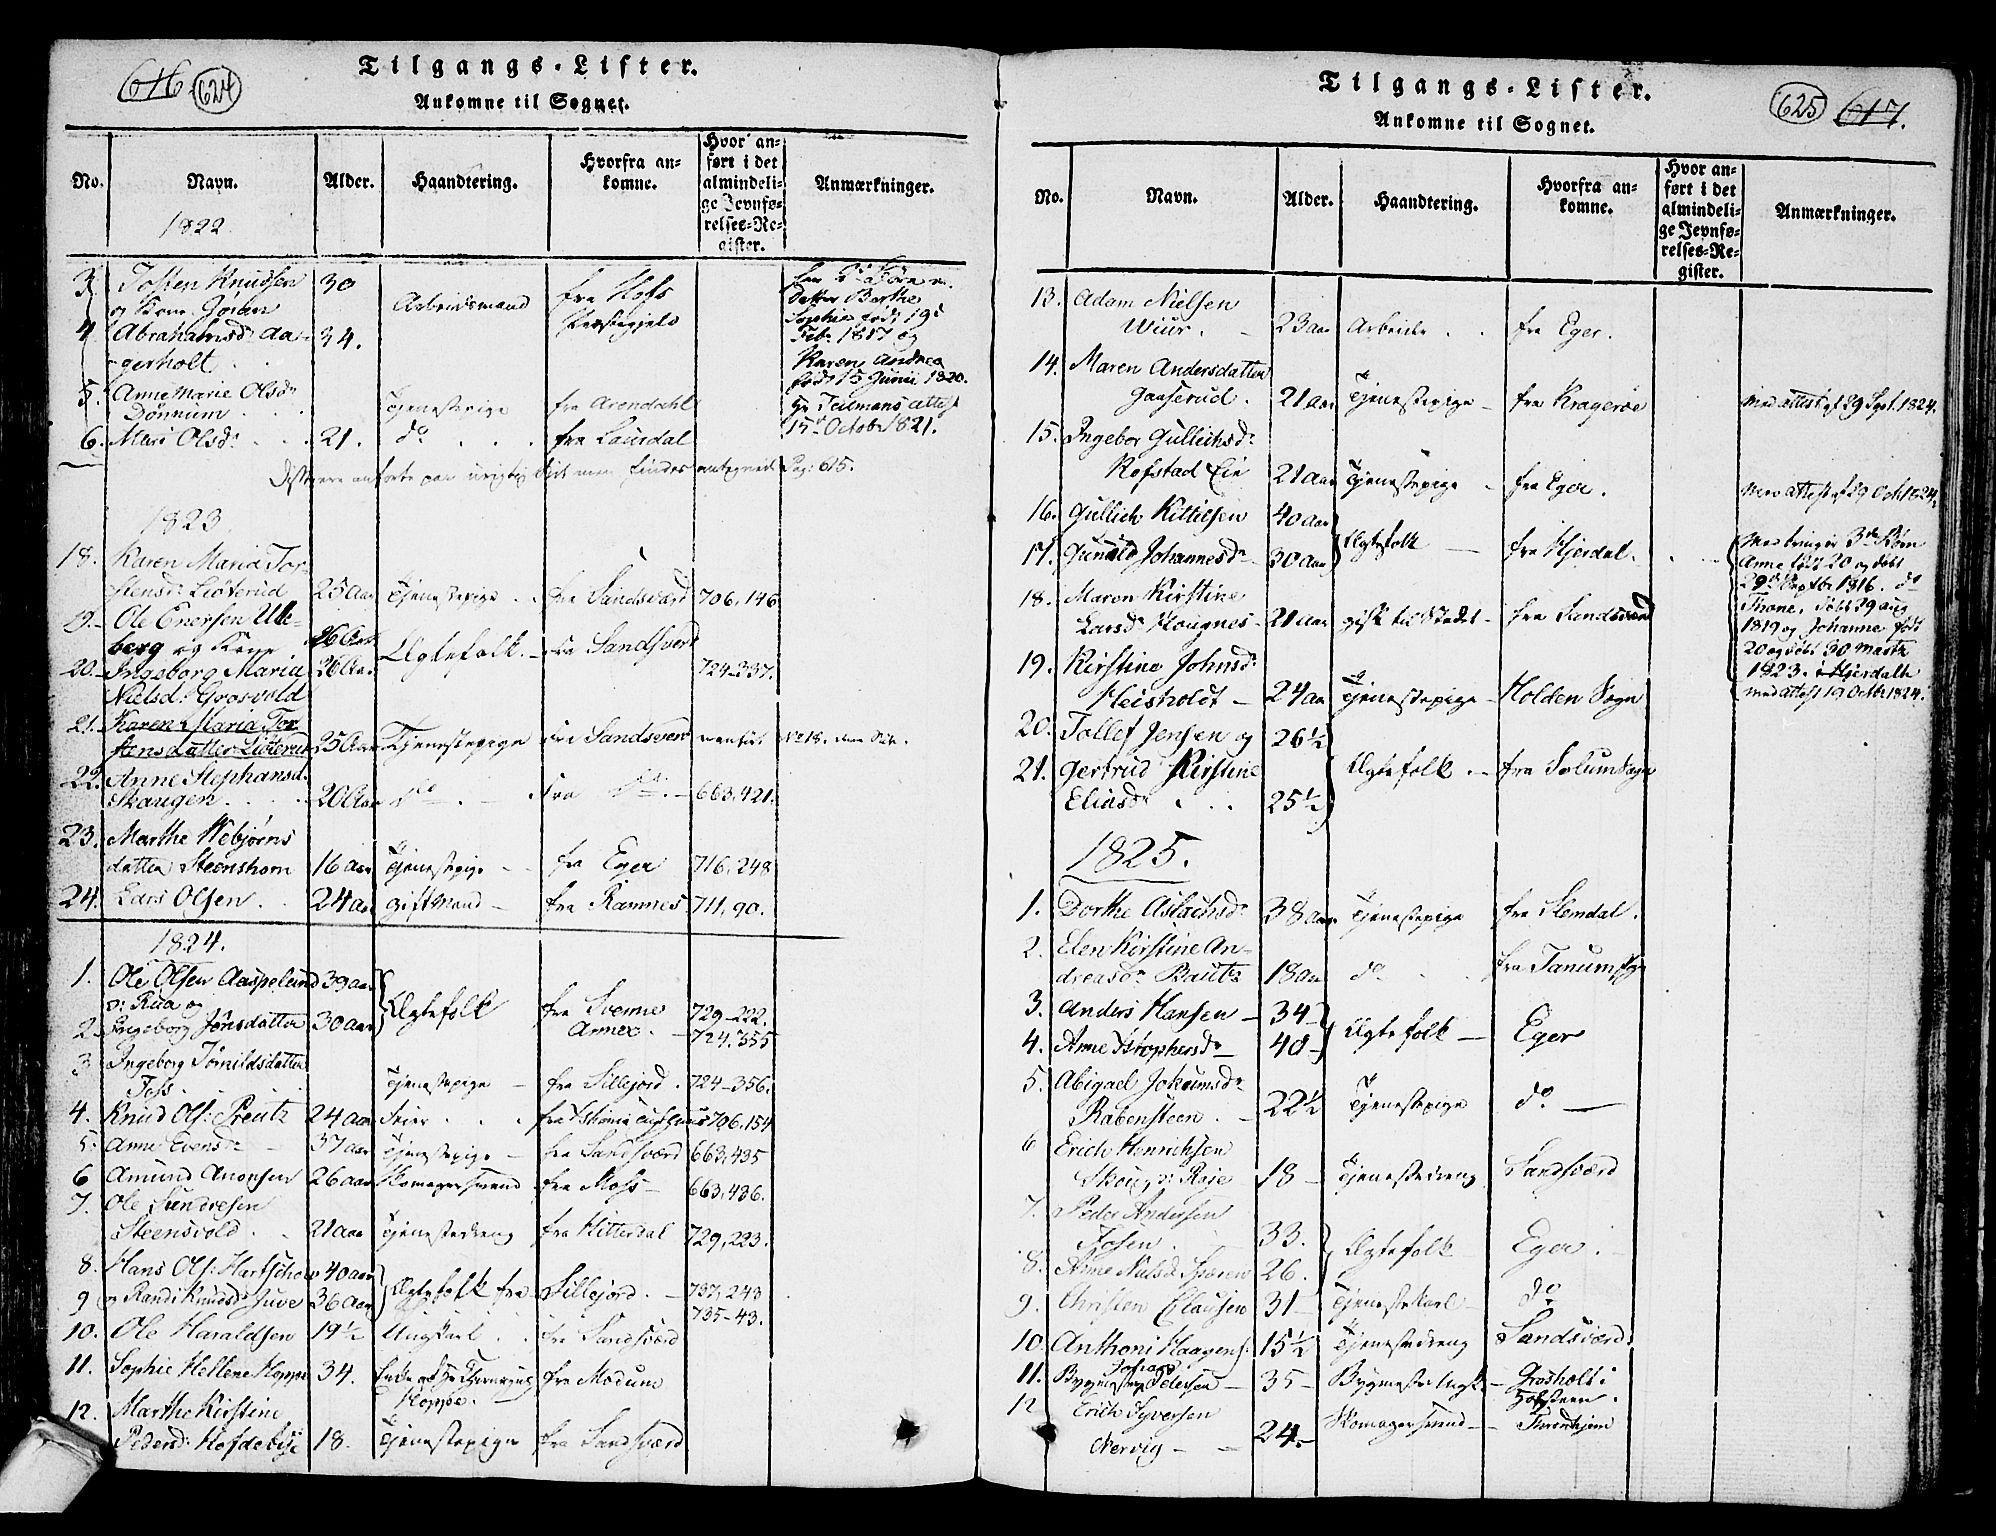 616 624
Tilgangs-Lister.
Ankomne til Sognet.
No. Navn. Alder. Haandtering. Hvorfra ankomne. Hvor anført i det almindelige Jevnførelses-Register. Anmærkninger.
1822
3. Tosten Knudsen 30 Arbeidsmand fra Hofs
og Kone Jøran Præstegjeld
4 Abrahamsd: Aa- 34.
gerholt
Datter Berthe
Sophie født 19
Feb: 1817 og
Karen Andrea
født 15 Junii 1820.
5. Anne Marie Olsdr Tjenestepige fra Arendahl
Dønnum
6. Mari Olsdr 21. do fra Laurdal
Attest
15 Octob 1821.
findes antegnede Pag: 615.
1823
18. Karen Maria Tor-
stensdr Liøterud 25 Aar Tjenestepige fra Sandsværd 706, 146
19. Ole Enersen Ulle-
berg og Kone 26 Aar Ægtefolk fra Sandsverd
20. Ingeborg Maria 26 Aar 724-337.
Nielsd: Grosvold
21. Karen Maria Tor-
stens Datter Liøterud 25 Aar Tjenestepige fra Sandsverd No 18.
22. Anne Stephansd.
Skaugen 20 Aar do fra do 663, 421.
23. Marthe Webjørns
datter Steenshorn 16 aar Tjenestepige fra Eger 716, 248
24. Lars Olsen 24 aar gift Mand fra Ramnes 711, 90.
1824.
1. Ole Olsen Aaspelund 39 aar Ægtefolk fra Svenne 729-222.
v: Rua og Annex.
2. Ingeborg Jønsdatter 30 aar 724.355
3 Ingeborg Tomildsdatter
Foss Tjenestepige fra Sillejord. 724-356.
4. Knud Ols: Preutz 24 aar Feier 706, 154
5. Anne Evensdr 37 aar Tjenestepige fra Sandsværd 663, 435
6 Amund Anonsen 26 aar Skomagersvend fra Moss 663, 436.
7. Ole Sundresen
Steensvold 21 aar Tjenestedreng fra Hitterdal 729, 223.
8. Hans Ols: Hartschow 40 aar Ægtefolk fra Sillejord. 737, 243
9 og Randi Knudsdr Juve 36 aar 735-43.
10. Ole Haraldsen 19½ Ungkarl fra Sandsværd
11. Sophie Hellene Hoppe 34. Enke fra Modum
Hoppe.
12. Marthe Kirstine
Pedersd: Hofdebise 18. Tjenestepige fra Sandsværd
Tilgangs-Lister.
Ankomne til Sognet.
625 617.
No. Navn. Alder. Haandtering. Hvorfra ankomne. Hvor anført i det almindelige Jevnførelses-Register. Anmærkninger.
13. Adam Nielsen
Wiur. 23 aar Arbeide fra Eger.
14. Maren Andersdatter
Gaaserud. 21 aar Tjenestepige fra Kragerøe Med attest af 29 Sept. 1824.
15. Ingebor Gullichsdr
Rofstad Eie 21 aar Tjenestepige fra Eger. Med attest af 29 Oct 1824
16. Gullich Kittilsen 40 aar Ægtefolk fra Hjerdal.
17. Gunild Johannesdr 30 aar
Medbringer 3de Børn
Anne født 20 og døbt
29de Septbr 1816. do
Thone, døbt 29 aug
1819 og Johanne født
20 og døbt 30 Martz
1823. i Hjerdahl
med attest 19 Octbr 1824.
18. Maren Kirstine
Larsdr Hougnes 21 aar gift til Stedet fra Sandsverd
19. Kirstine Johnsdr
Heisholdt 24 aar Tjenestepige Holden Sogn
20. Tollef Jensen og 26½ Ægtefolk fra Solum Sogn
21. Gertrud Kirstine
Eliasdr 25½
1825.
1. Dorthe Aslachsdr 38 aar Tjenestepige fra Slemdal.
2. Elen Kirstine An-
dreasdr Bautz 18 aar do fra Tanum
3. Anders Hansen 34 Ægtefolk Eger
4. Anne Xstophersdr 40
5. Abigael Jokumsdr
Rabensteen 22½ Tjenestepige do
6 Erich Henrichsen
Skoug v: Raje 18 Tjenestedreng Sandsværd
7. Peder Andersen
Fosen 33. Ægtefolk Eger.
8. Anne Nielsd: Sporen 26.
9. Christen Clausen 31 Tjenestekarl do
10. Anthoni Haagens: 15½ Tjenestedreng Sandsværd.
11. Bygmester Johan Petersen 35 Bygmester Grosholt i
Holsteen.
12 Erich Syversen
Nervig 24 Skomagersvend Throndhjem